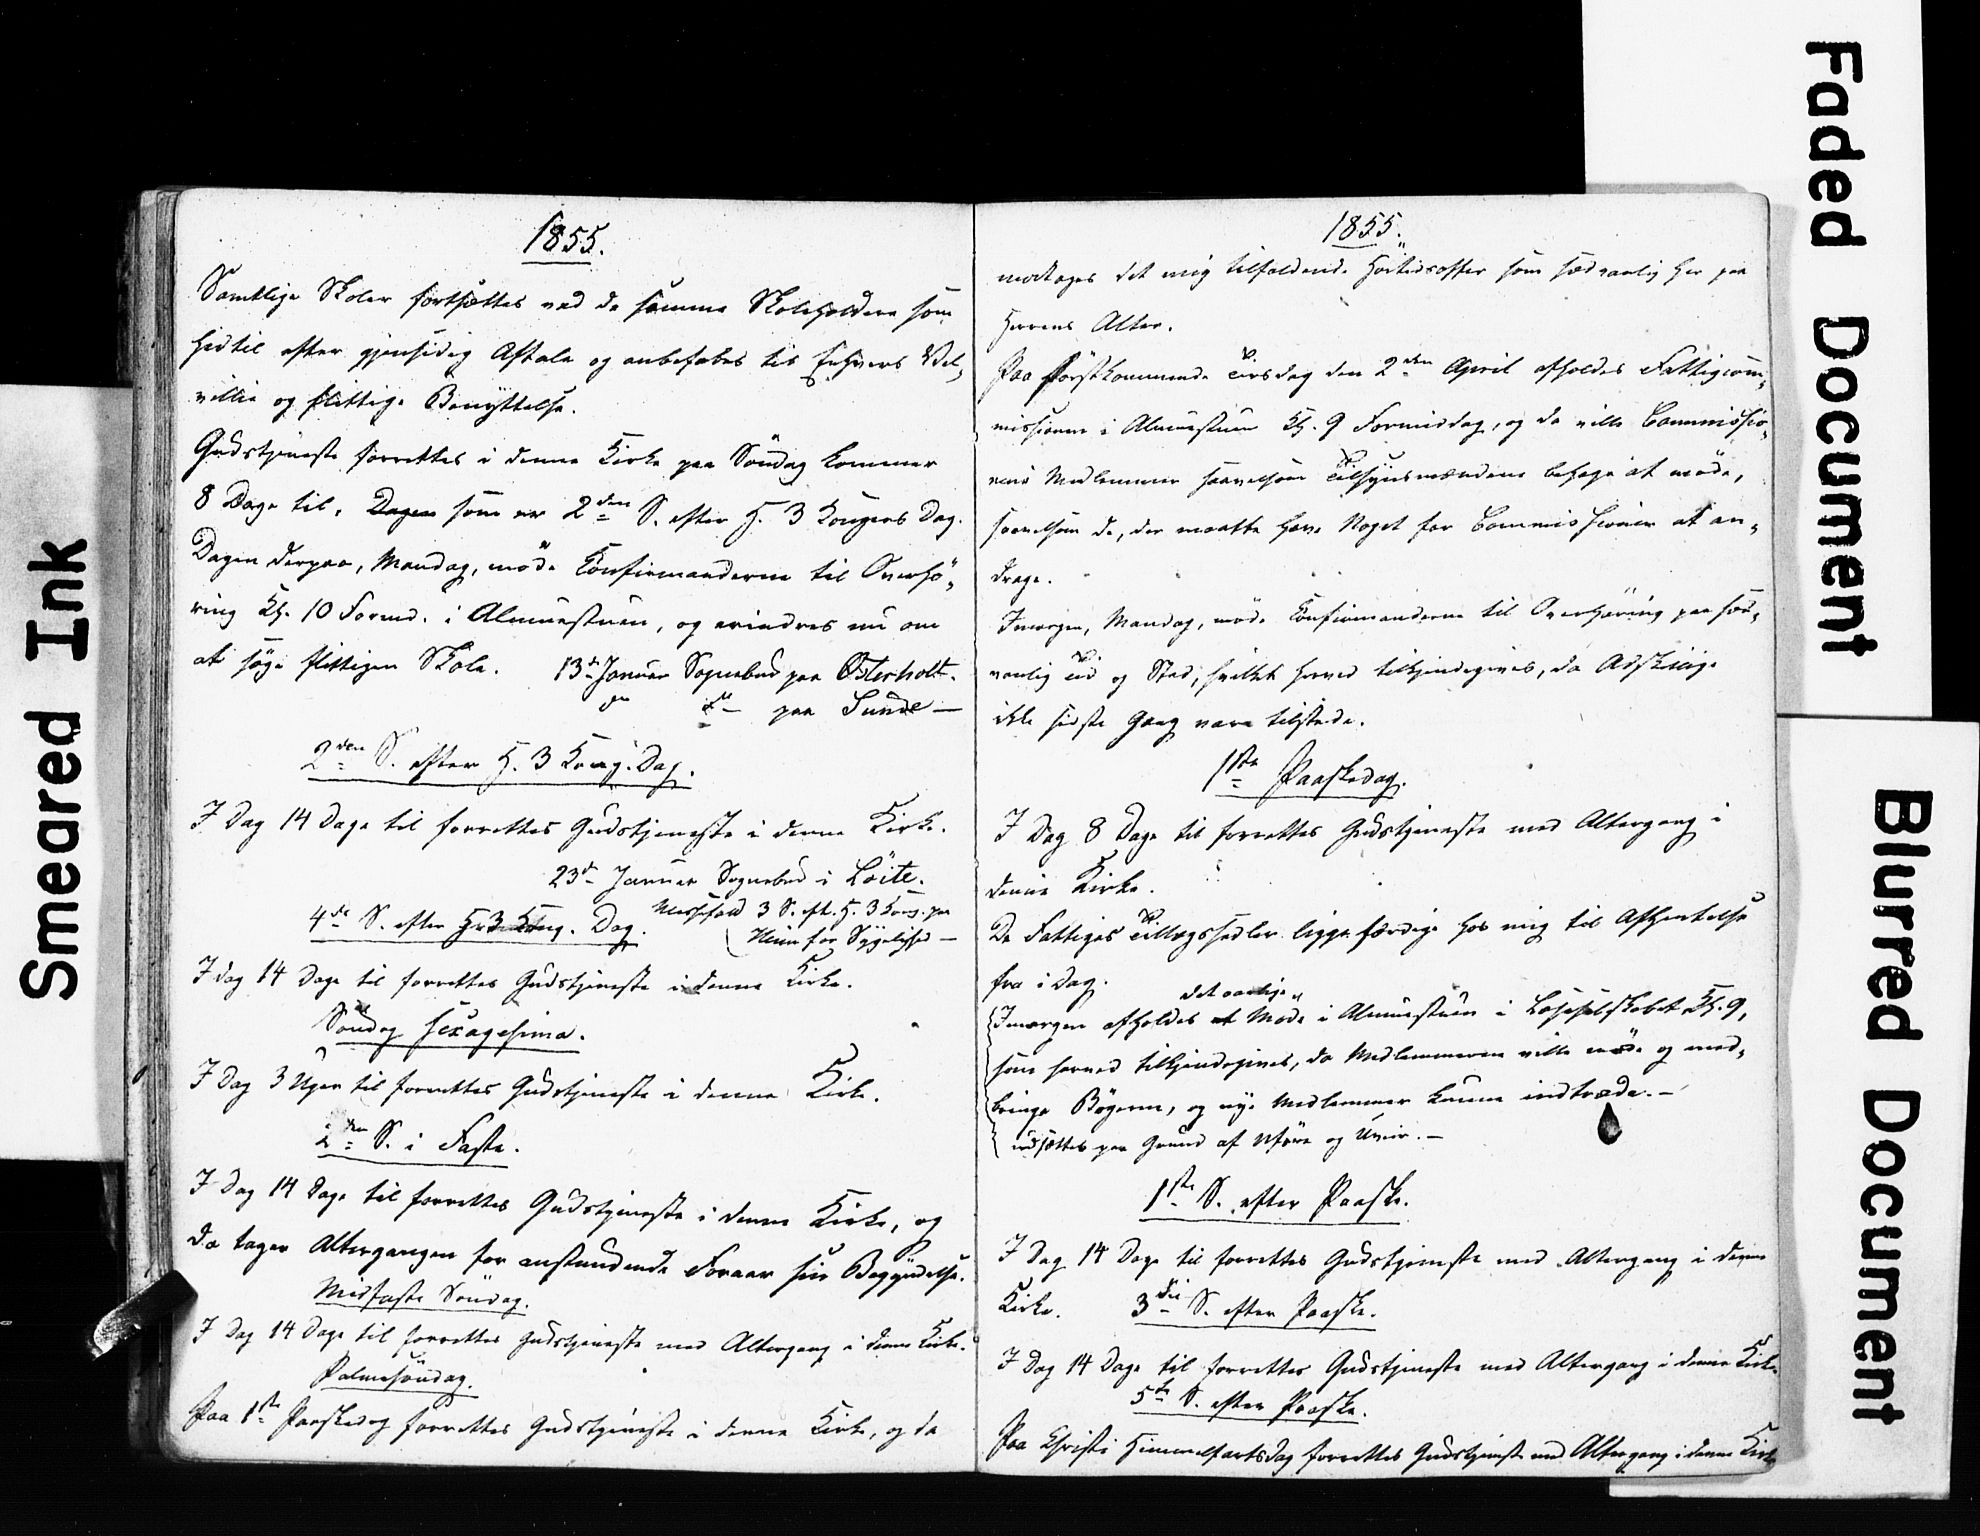 1855.
Samtlige Skoler fortsættes ved de samme Skoleholdere som
hidtil efter gjensidig Aftale og anbefales til Enhvers Vel-
villie og flittige Benyttelse.
Gudstjeneste forrettes i denne Kirke paa Søndag kommer
8 Dage til, Dagen som er 2den S. efter H. 3 Kongers Dag.
Dagen derpaa, Mandag, møde Confirmanderne til Overhø-
ring Kl. 10 Formd. i Almuestuen, og erindres nu om
at søge flittigen Skole. 13de Januar Sognebud paa Österholt.
paa Sunde —
2den S. efter H. 3 Kong. Dag.
I Dag 14 Dage til forrettes Gudstjeneste i denne Kirke.
23de Januar Sognebud i Löite.
4de S. efter H. 3 Kong. Dag. Messefald 3 S. eft. H. 3 Kong. paa
for Sygelighed —
I dag 14 Dage til forrettes Gudstjeneste i denne Kirke.
Søndag Sexagesima.
I Dag 3 Uger til forrettes Gudstjeneste i denne Kirke.
2den S. i Faste.
I Dag 14 Dage til forrettes Gudstjeneste i denne Kirke, og
da tager Altergangen for anstundende Foraar sin Begyndelse.
Midfaste Søndag.
I Dag 14 Dage til forrettes Gudstjeneste med Altergang i denne Kirke.
Palmesøndag.
Paa 1ste Paaskedag forrettes Gudstjeneste i denne Kirke, og da
1855.
modtages det mig tilfaldende Høitidsoffer som sædvanlig her paa
Herrens Alter.
Paa førstkommende Tirsdag den 2den April afholdes Fattigcom-
missionen i Almuestuen Kl. 9 Formiddag, og da ville Commissio-
nens Medlemmer saavelsom Tilsynsmændene behage at møde,
saavelsom de, der maatte have Noget for Commissionen at an-
drage.
Imorgen, Mandag, møde Confirmanderne til Overhøring paa sæd-
vanlig Tid og Sted, hvilket herved tilkjendegives, da Adskillige
ikke sidste Gang vare tilstede.
1ste Paaskedag.
I Dag 8 Dage til forrettes Gudstjeneste med Altergang i
denne Kirke.
De Fattiges Tillægssedler ligge færdige hos mig til Afhentelse
fra i Dag.
det aarlige
Imorgen afholdes et Møde i Almuestuen i Læseselskabet Kl. 9,
som herved tilkjendegives, da Medlemmerne ville møde og med-
bringe Bøgerne, og nye Medlemmer kunne indtræde. —
udsættes paa Grund af Uføre og Uveir. —
1ste S. efter Paaske.
I Dag 14 Dage til forrettes Gudstjeneste med Altergang i denne
Kirke. 3die S. efter Paaske.
I Dag 14 Dage til forrettes Gudstjeneste med Altergang i denne Kirke.
5te S. efter Paaske.
Paa Christi Himmelfartsdag forrettes Gudstjeneste med Altergang i denne Kirke
Smeared Ink
Faded Document
Blurred Document